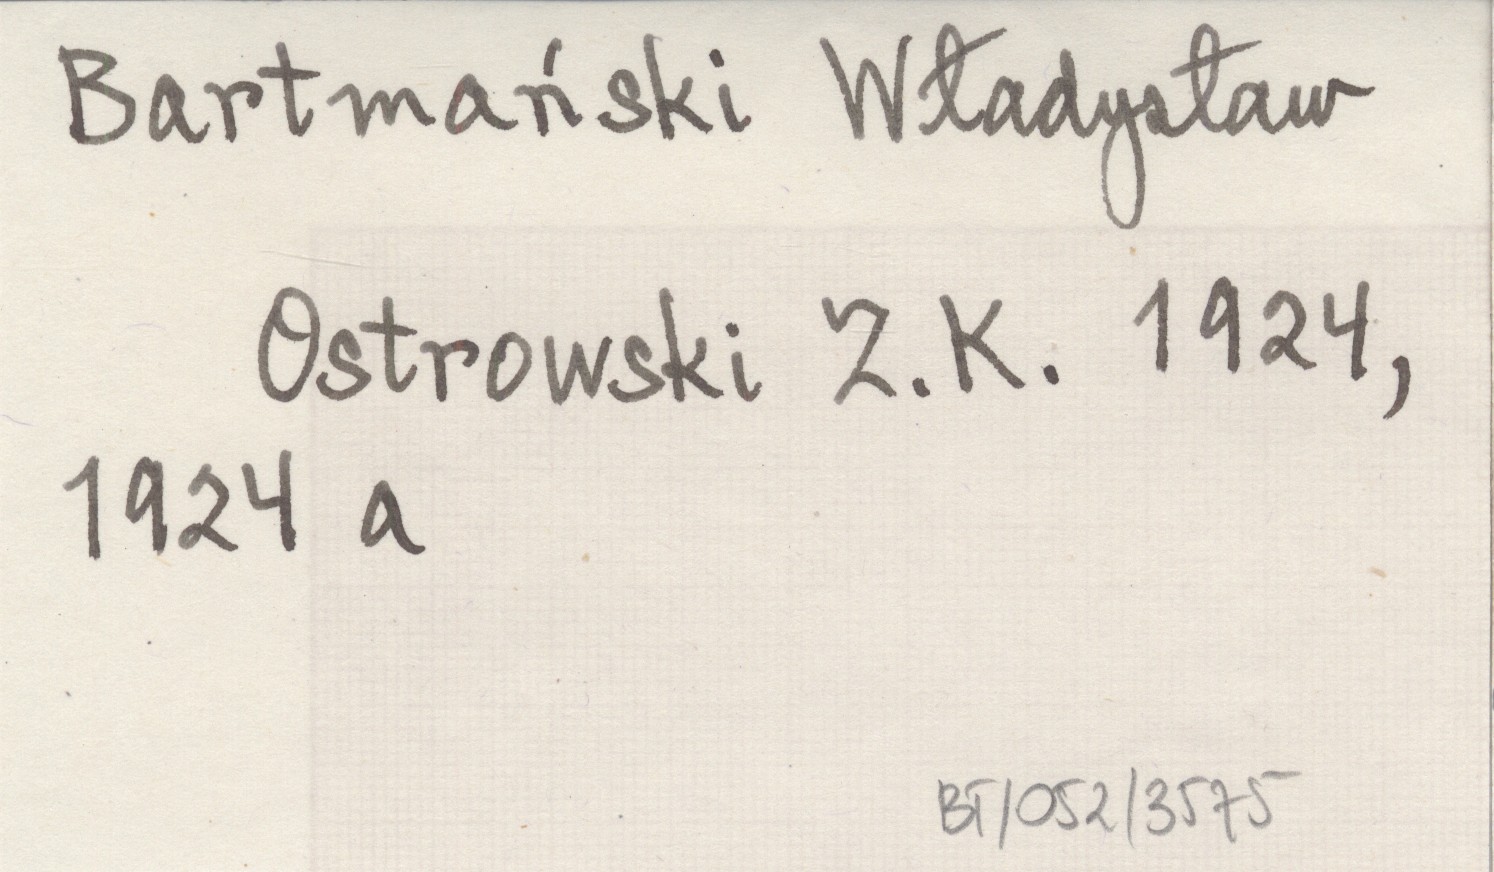 Bartmański Władysław
Ostrowski Z.K. 1924,
1924 a
BT/052/3575